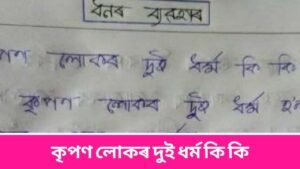 ধনৰ ব্যৱহাৰ
পণ লোকৰ দুই ধৰ্ম কি কি
কৃপণ লোকৰ দুই ধৰ্ম হ'ল
কৃপণ লোকৰ দুই ধৰ্ম কি কি